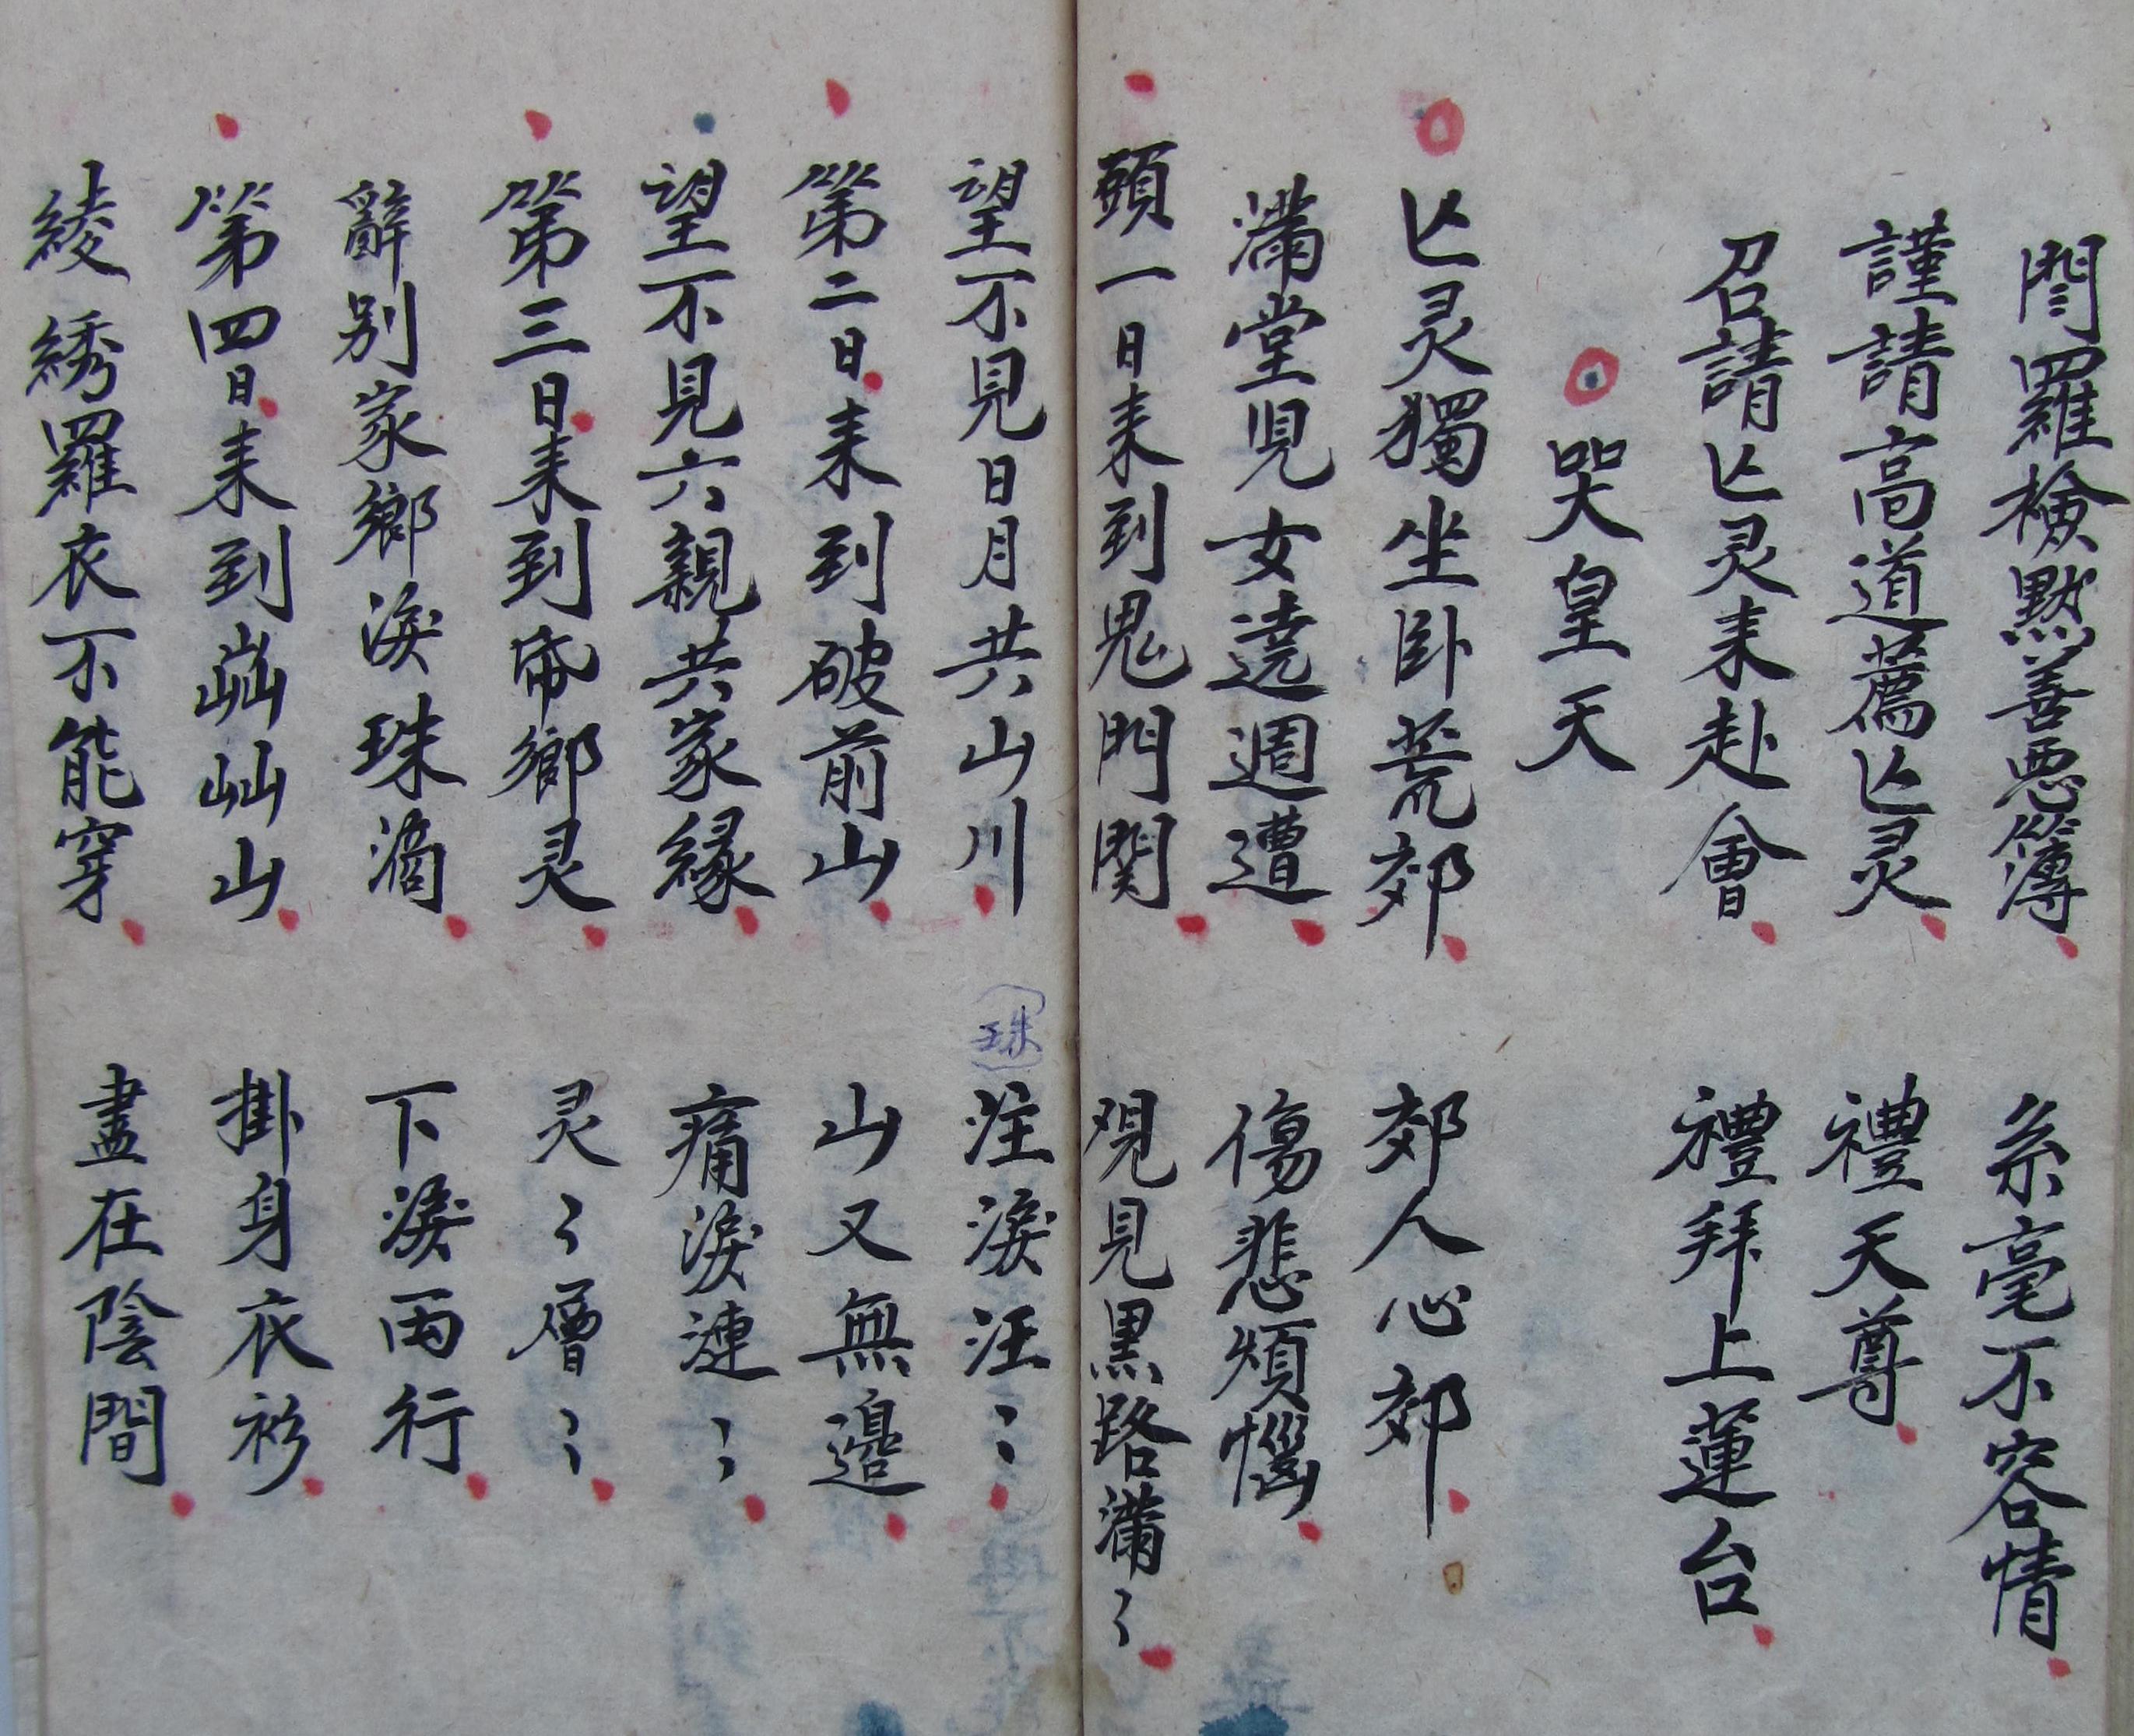 閰羅檢點善惡簿 糸毫不容情
謹請高道薦亡灵 禮天尊
召請亡灵來赴會 禮拜上蓮台
哭皇天
亡灵獨坐卧荒郊 郊人心郊
滿堂兒女遶週遭 傷悲煩惱
頭一日來到鬼門關 覌見黑路滿〻
望不見日月共山川 注淚汪〻
(珠)
第二日來到破前山 山又無邊
望不見六親共家緣 痛淚漣〻
第三日來到帝鄉灵 灵〻層〻
辭别家鄉淚珠滴 下淚両行
第四日來到 山 掛身衣衫
綾綉羅衣不能穿 盡在陰間